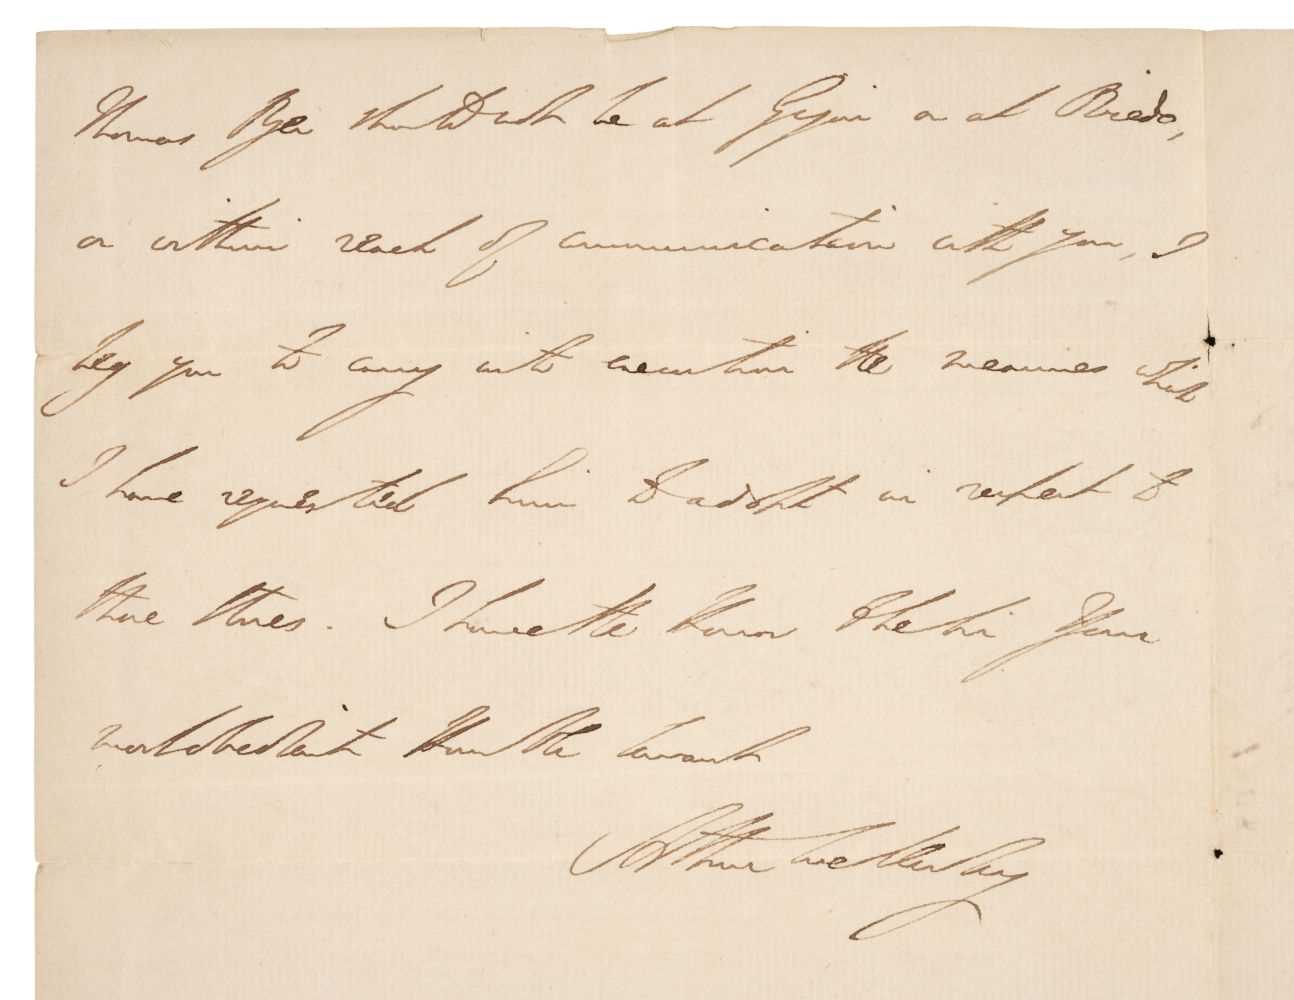 Thomas Dyer should not be at Gijon or at Oviedo,
or within reach of communication with you, I
beg you to carry into execution the measures which
I have requested him to adopt in respect to
those Stores. I have the Honor to be Sir Your
most obedient Humble Servant
Arthur Wellesley